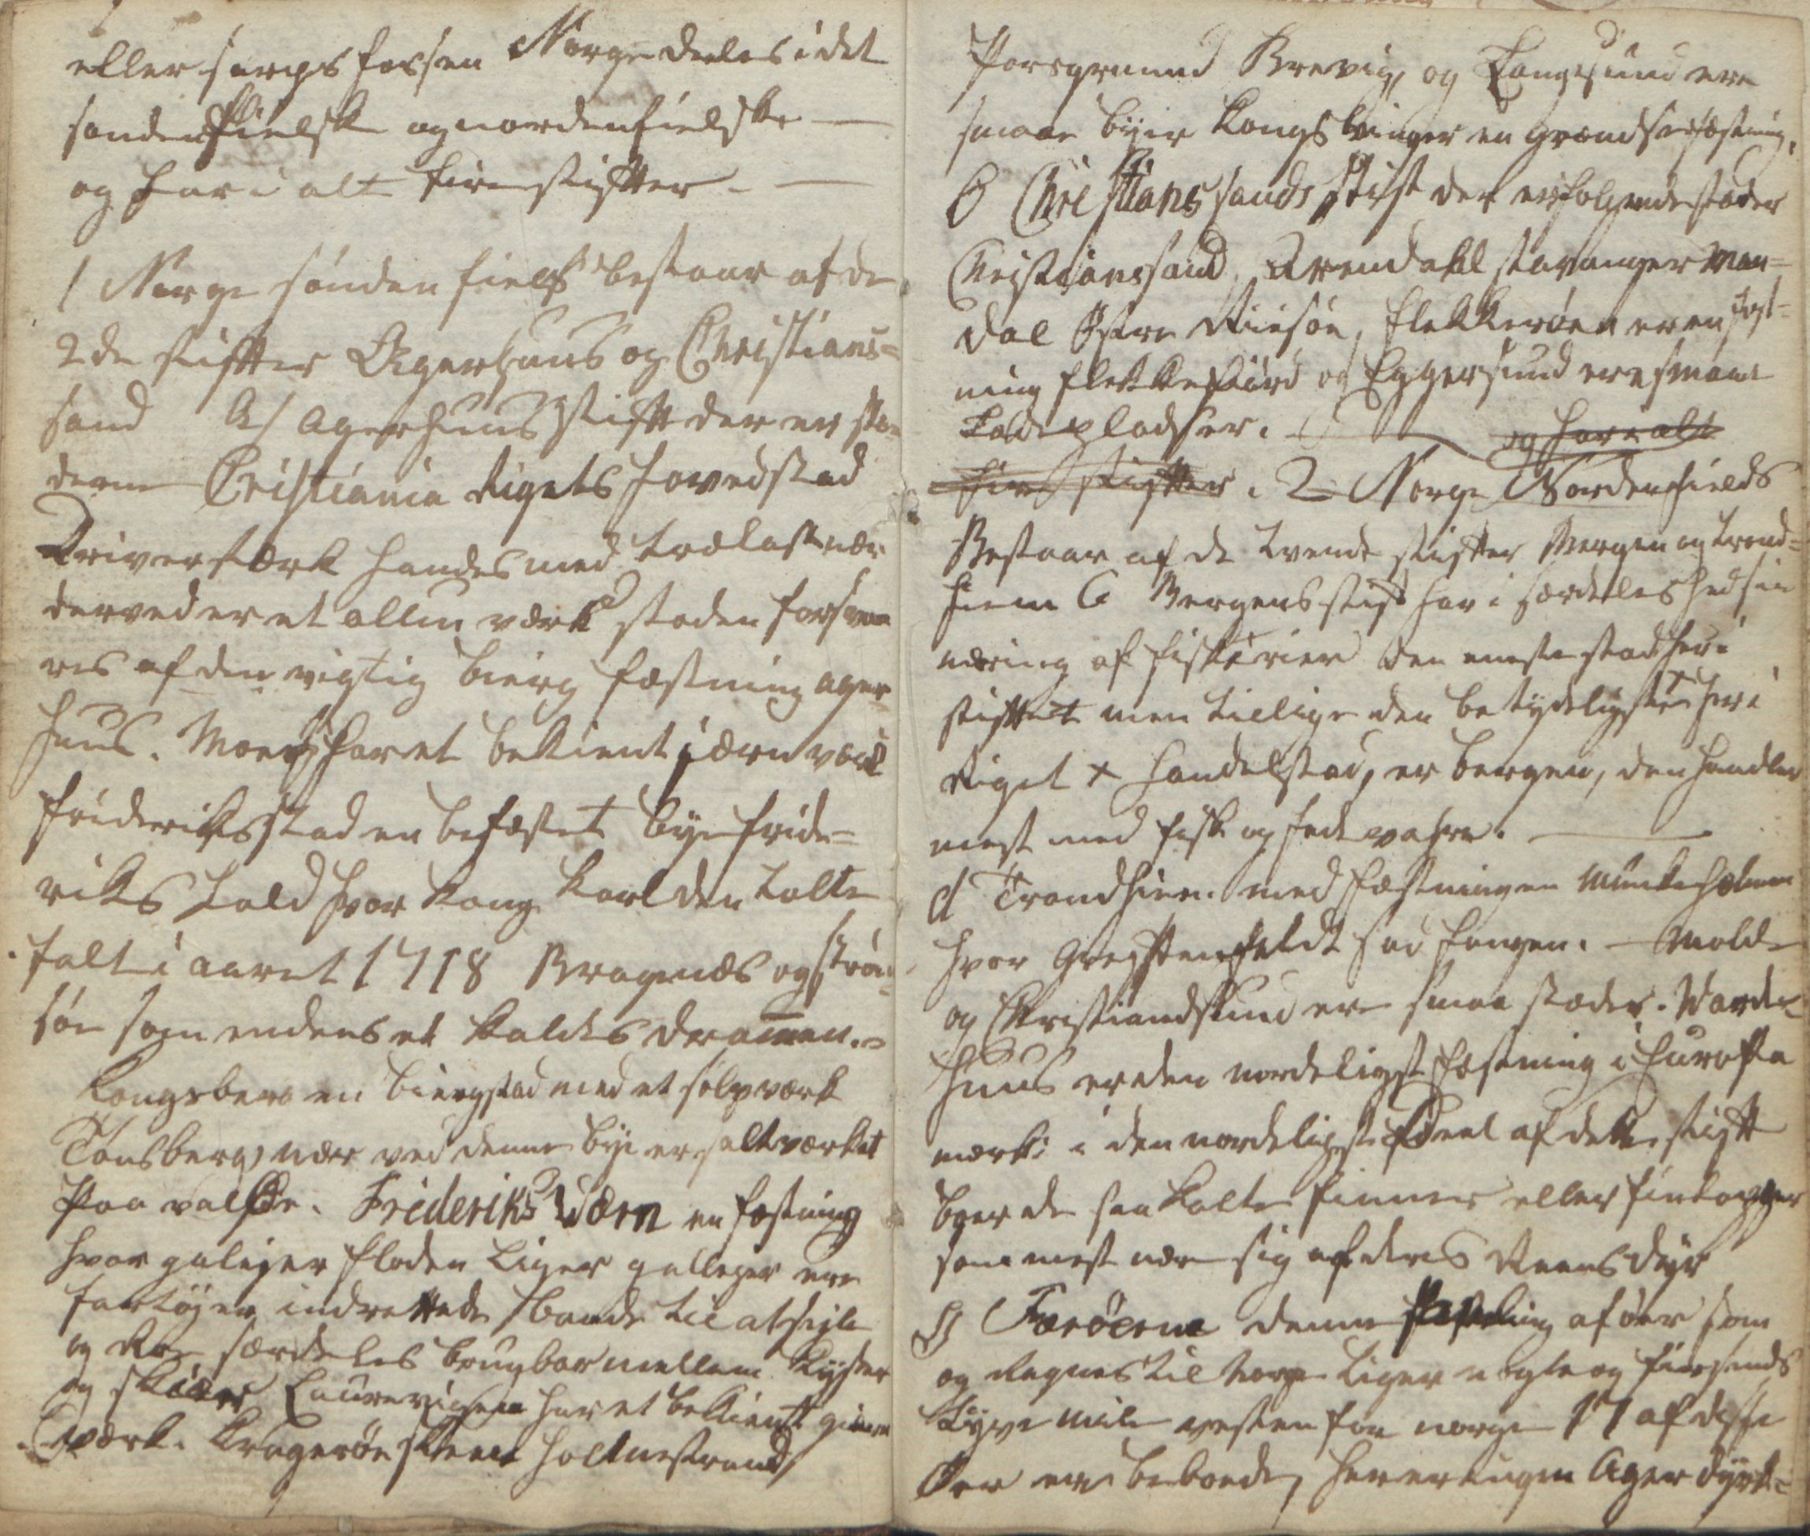 eller sarps fossen Norge deeles i det
søndenfielske og nordenfielske —
og har i alt fire stifter. —
1 Norge sønden fields bestaar af de
2de stifter Agerhuus og Christians=
sand A/ Agerhuus stift der er stæ=
derne Cristiania Rigets hovedstad
Driver stærk handel med trælast nær
derved er et allun værk staden forsva
res af den vigtig bierg fæstning ager
huus. Moss har et bekient jærn værk
friderikstad en befæstet bye fride=
riks hald hvor kong Karl den tolte
falt i aaret 1718 Bragnæs og strøm
søe som endens et kaldes Drammen.=
Kongsberg en biergstad med et sølvværk
Tønsberg, nær ved denne bye er saltværket
paa valløe. Frideriks Værn en fæstning
hvor galeier floden liger galleyer ere
fartøyer indrettede baade til at seyle
og Roe særdeles brugbar mellem kyster
og skiær Laurvigen har et bekient giern
værk. Kragerøe skeen holmestrand,
Porsgrund Brevig, og Langesund ere
smaae byer Kongsvinger en grændsefæstning,
B Christianssands stift der er følgende stæder
Christianssand, Arendahl stavanger Man=
dal østre Riisøe, flekkerøen er en fæst=
ning flekkefiord og Eggersund ere smaae
ladepladser. og har i alt
fire stifter. 2 Norge Nordenfields
Bestaar af de tvende stifter Bergen og trond=
hiem C Bergens stift har i særdeleshed sin
næring af fiskerier den eneste stad her i
stiftet men tillige den betydeligste her i
Riget + handelstad, er bergen, den handler
mest med fisk og fede vahre. —
d Trondhiem. med fæstningen munkeholmen
hvor Greffenfeldt sad fangen. — Molde
og Christiandsund ere smaa stæder. Warde=
huus er den nordeligste fæstning i Europa
mærk: i den nordeligste Deel af dette stift
boer de saa kalte finner eller finlapper
som mest nær sig af deres Reensdyr
Færøerne denne samling af øer som
og Regnes til norge liger nogle og fiersends
tyve mile vesten for norge 17 af disse
øer ere beboede, her er ingen Ager dyrk=